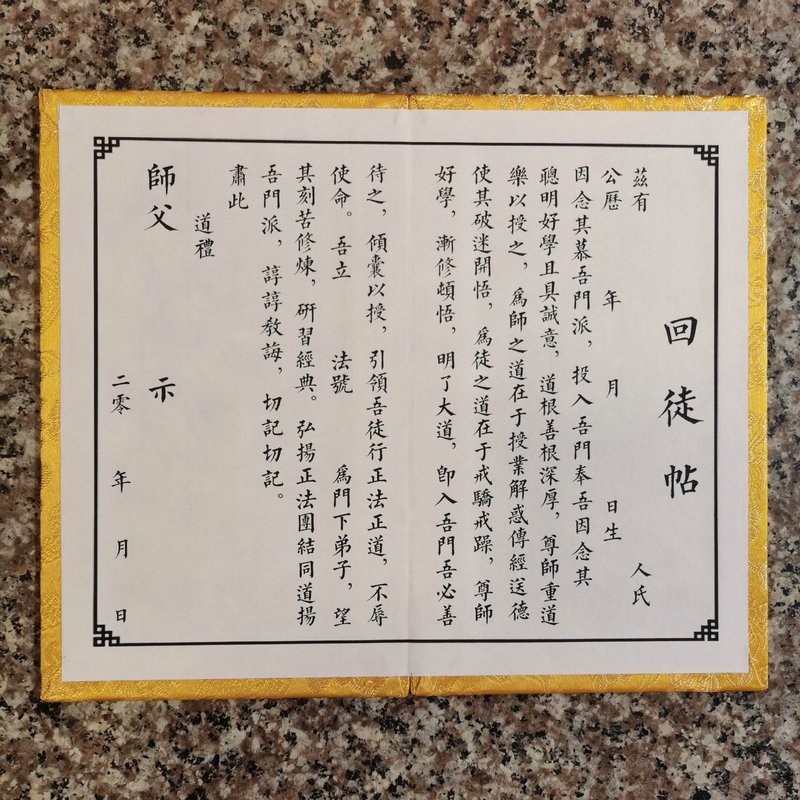 回徒帖
茲有 人氏
公曆 年 月 日生
因念其慕吾門派，投入吾門奉吾因念其
聰明好學且具誠意，道根善根深厚，尊師重道
樂以授之，為師之道在于授業解惑傳經送德
使其破迷開悟，為徒之道在于戒驕戒躁，尊師
好學，漸修頓悟，明了大道，即入吾門吾必善
待之，傾囊以授，引領吾徒行正法正道，不辱
使命。吾立 法號 為門下弟子，望
其刻苦修煉，研習經典。弘揚正法團結同道揚
吾門派，諄諄教誨，切記切記。
肅此
道禮
師父 示
二零 年 月 日